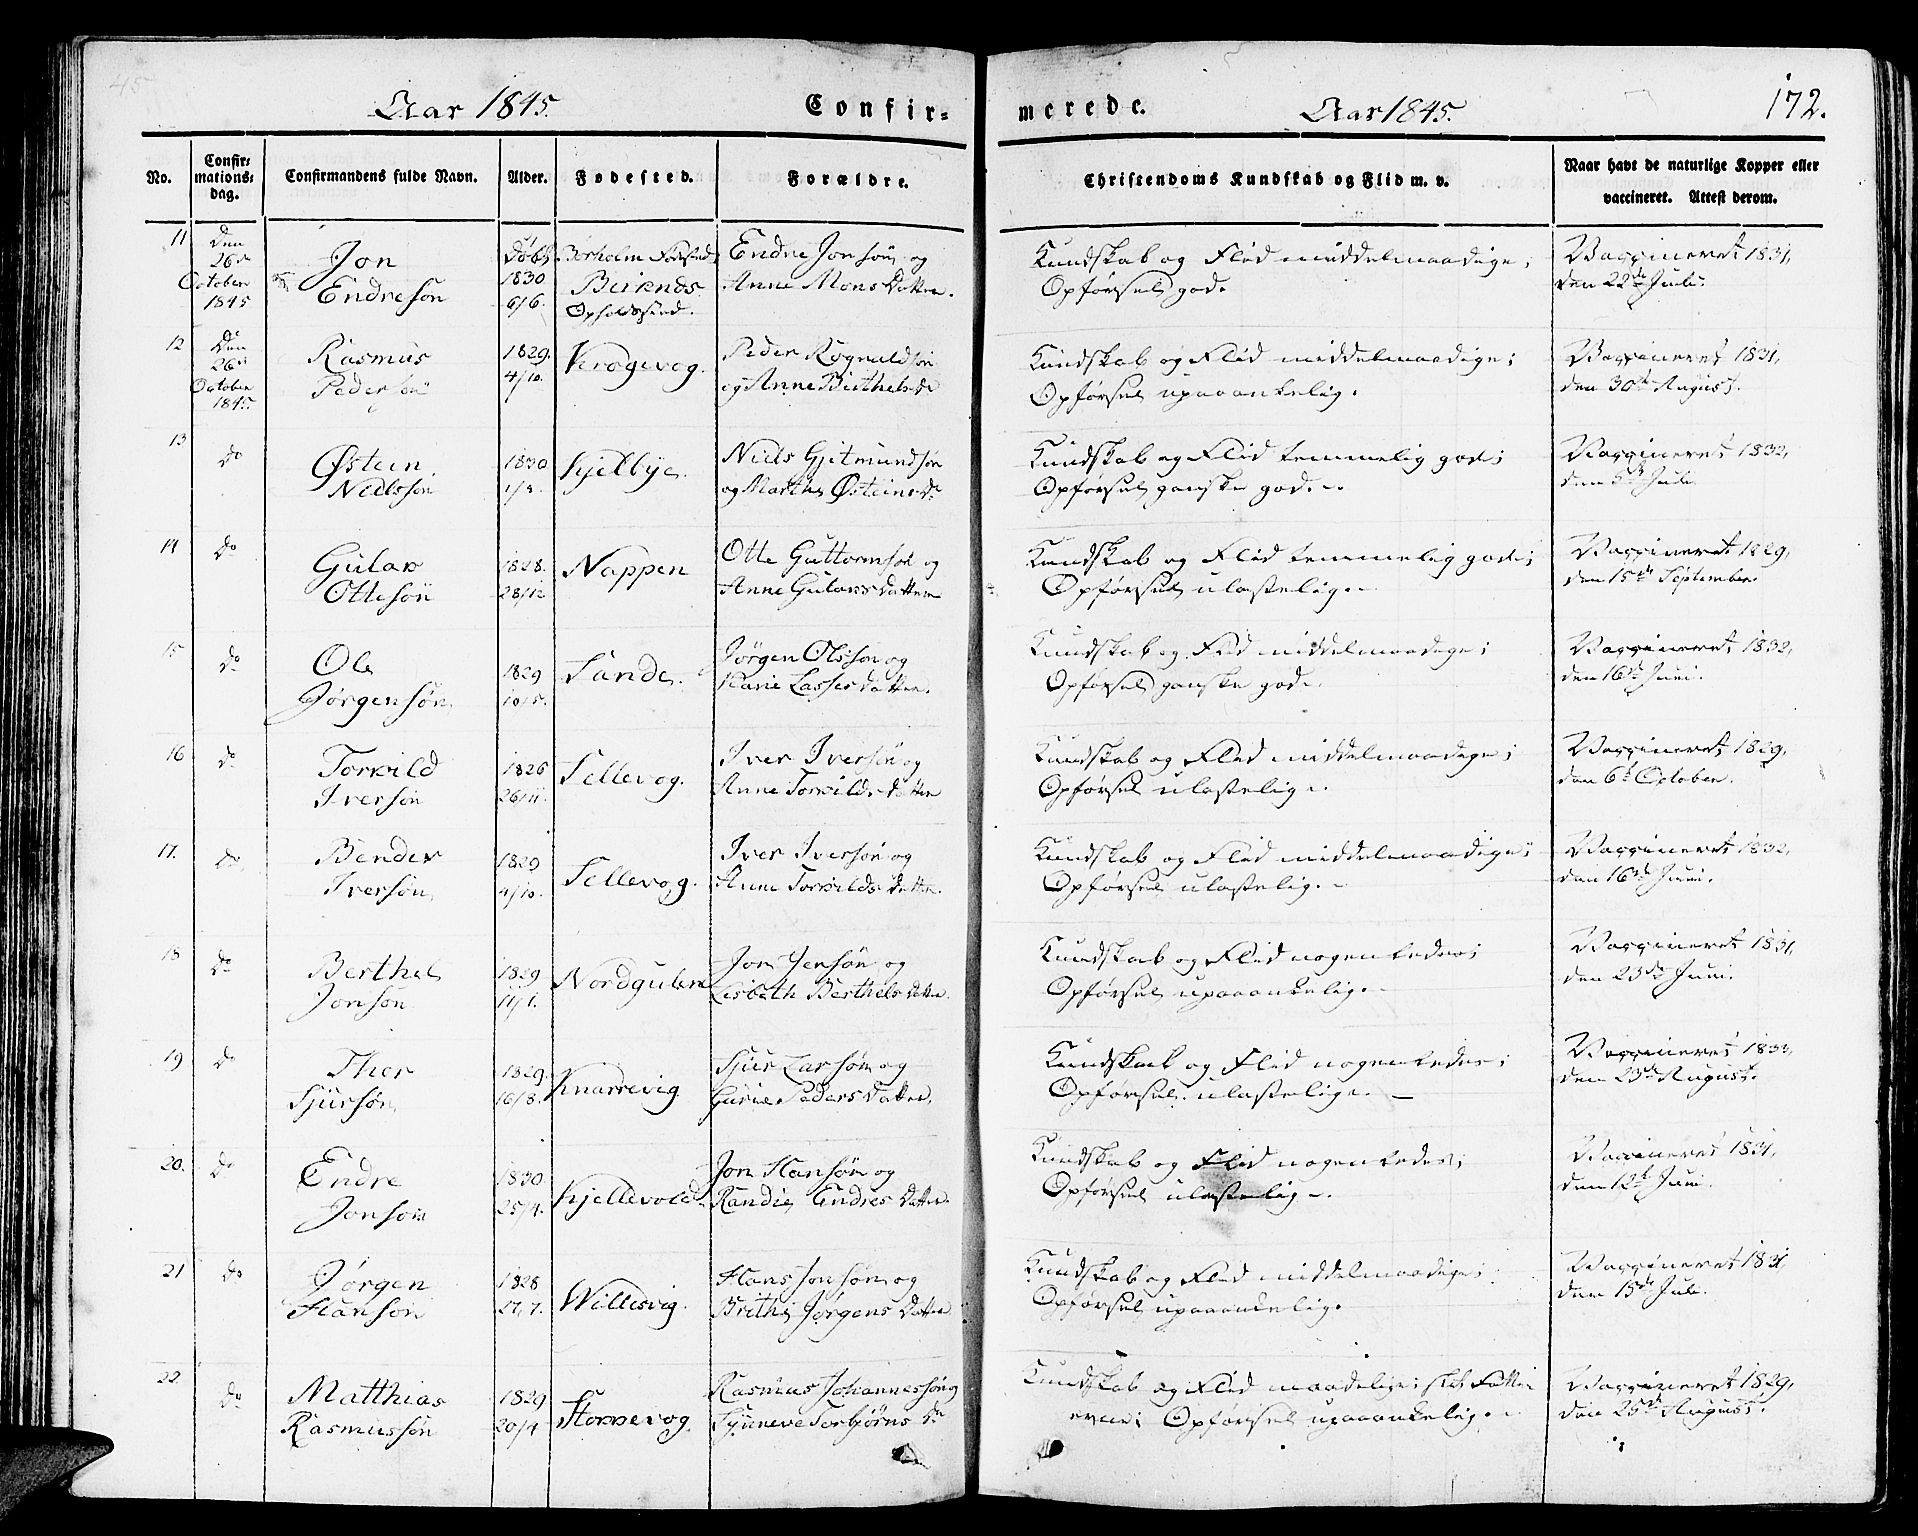 Aar 1845. Confir-
No.
Confir-
mations-
dag.
Confirmandens fulde Navn.
Alder.
Fødested.
Forældre.
11 Den
26de
October
1845
Jon
Endresøn
Døbt
1830
6/6.
Birknes
Opholdssted.
Endre Jonsøn og
Anne Mons Datter.
12 Den
26de
October
1845.
Rasmus
Pedersøn
1829.
4/10.
Krogevog.
Peder Rognaldsøn
og Anne Berthels Dr
13 do
Østein
Nielssøn
1830
Kjelbye.
Niels Gjetmundsøn
og Marthe Østeins Dr
14 do
Gular
Ottesøn
1828.
28/12
Nappen
Otte Guttormsøn og
Anne Gulars Datter
15 do
Ole
Jørgensøn
1829
10/5.
Sande.
Jørgen Olsson og
Marie Lasses Datter.
16 do
Torkild
Iversøn
1826
26/11.
Sellevog.
Iver Iversøn og
Anne Torkilds Datter
17. do
Bender
Iversøn
1829
4/10.
Sellevog.
Iver Iversøn og
Anne Torkilds Datter.
18 do
Berthel
Jonsøn
1829
11/1.
Nordgulen
Jon Jensøn og
Lisbeth Berthels Datter.
19 do
Ther
Sjursøn
1829.
16/8.
Knarrevig
Sjur Larsøn og
Gurine Peders Datter.
20. do
Endre
Jonsøn
1830
25/4.
Kjellevold
Jon Hansøn og
Randie Endres Datter
21 do
Jørgen
Hansøn
1828
27/7.
Willesvig.
Hans Jonsøn og
Brithe Jørgens Datter
22. do
Matthias
Rasmussøn
1829
20/4
Storrevog.
Rasmus Johannessøn og
Synneve Torbjørns Dr
merede. Aar 1845. 172.
Christendoms Kundskab og Flid m. v.
Naar havt de naturlige Kopper eller
vaccineret. Attest derom.
Kundskab og Flid middelmaadige;
Opførsel god.
Vaccineret 1831,
den 22de Juli.
Kundskab og Flid middelmaadige;
Opførsel upaaankelig.
Vaccineret 1831,
den 30te August.
Kundskab og Flid temmelig gode;
Opførsel ganske god.
Vaccineret 1832,
den 5te Juli
Kundskab og Flid temmelig gode;
Opførsel ulastelig.
Vaccineret 1829,
den 15de September.
Kundskab og Flid middelmaadige;
Opførsel ganske god.
Vaccineret 1832,
den 16de Juni.
Kundskab og Flid middelmaadige;
Opførsel ulastelig.
Vaccineret 1829,
den 6te October.
Kundskab og Flid middelmaadige;
Opførsel ulastelig.
Vaccineret 1832,
den 16de Juni.
Kundskab og Flid nogenledes;
Opførsel upaaankelig.
Vaccineret 1831,
den 23de Juni.
Kundskab og Flid nogenledes;
Opførsel ulastelig.
Vaccineret 1833,
den 23de August.
Kundskab og Flid nogenledes;
Opførsel ulastelig.
Vaccineret 1831,
den 12te Juni.
Kundskab og Flid middelmaadige;
Opførsel upaaankelig.
Vaccineret 1831,
den 15de Juli.
Kundskab og Flid maadelige; slet Fatte-
evne; Opførsel upaaankelig.
Vaccineret 1829,
den 25de August.